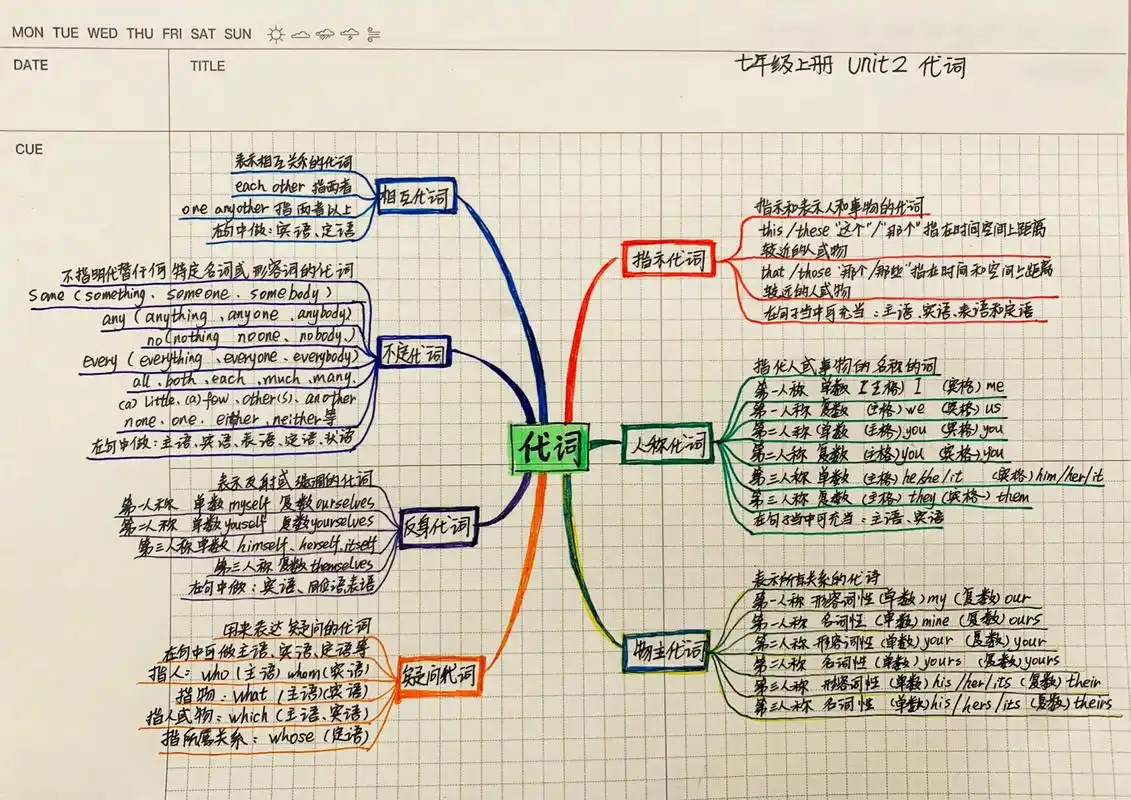 MON TUE WED THU FRI SAT SUN
DATE
TITLE
七年级上册 Unit 2 代词
CUE
代词
相互代词
表示相互关系的代词
each other 指两者
one anyother 指两者以上
在句中做：宾语、定语
不定代词
不指明代替任何特定名词或形容词的代词
Some (something、someone、somebody)
any (anything、anyone、anybody)
no (nothing noone、nobody.)
every (everything、everyone、everybody)
all、both、each、much、many.
(a) little、(a) few、other(s)、another
none、one、either、neither等
在句中做：主语、宾语、表语、定语、状语
反身代词
表示反射或强调的代词
第一人称 单数 myself 复数 ourselves
第二人称 单数 youself 复数 yourselves
第三人称 单数 himself、herself、itself
第三人称 复数 themselves
在句中做：宾语、同位语、表语
疑问代词
用来表达疑问的代词
在句中可做主语、宾语、定语等
指人：who (主语) whom (宾语)
指物：what (主语)(宾语)
指人或物：which (主语、宾语)
指所属关系：whose (定语)
指示代词
指示和表示人和事物的代词
this/these "这个"/"那个" 指在时间空间上距离
较近的人或物
that/those "那个/那些" 指在时间和空间上距离
较远的人或物
在句子当中可充当：主语、宾语、表语和定语
人称代词
指代人或事物的名称的词
第一人称 单数 (主格) I (宾格) me
第一人称 复数 (主格) we (宾格) us
第二人称 (单数 (主格) you (宾格) you
第二人称 复数 (主格) you (宾格) you
第三人称 单数 (主格) he/she/it (宾格) him/her/it
第三人称 复数 (主格) they (宾格) them
在句子当中可充当：主语、宾语
物主代词
表示所有关系的代诗
第一人称 形容词性 (单数) my (复数) our
第一人称 名词性 (单数) mine (复数) ours
第二人称 形容词性 (单数) your (复数) your
第二人称 名词性 (单数) yours (复数) yours
第三人称 形容词性 (单数) his/her/its (复数) their
第三人称 名词性 (单数) his/hers/its (复数) theirs